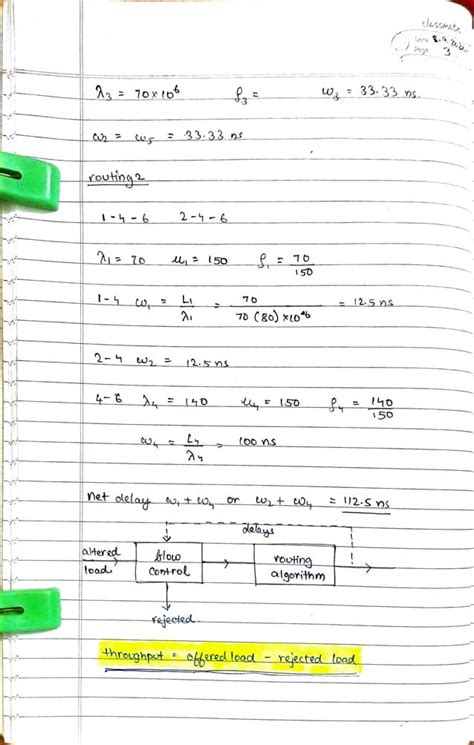 classmate
Date
Page 3
λ3 = 70×10⁶ ρ3 = w3 = 33.33 ns.
w2 = w5 = 33.33 ns
routing 2
1-4-6 2-4-6
λ1 = 70 μ1 = 150 ρ1 = 70/150
1-4 w1 = L1/λ1 = 70/70(80)×10⁶ = 12.5 ns
2-4 w2 = 12.5 ns
4-6 λ4 = 140 μ4 = 150 ρ4 = 140/150
w4 = L4/λ4 = 100 ns
net delay w1 + w4 or w2 + w4 = 112.5 ns
delays
altered load
flow control
routing algorithm
rejected.
throughput = offered load - rejected load